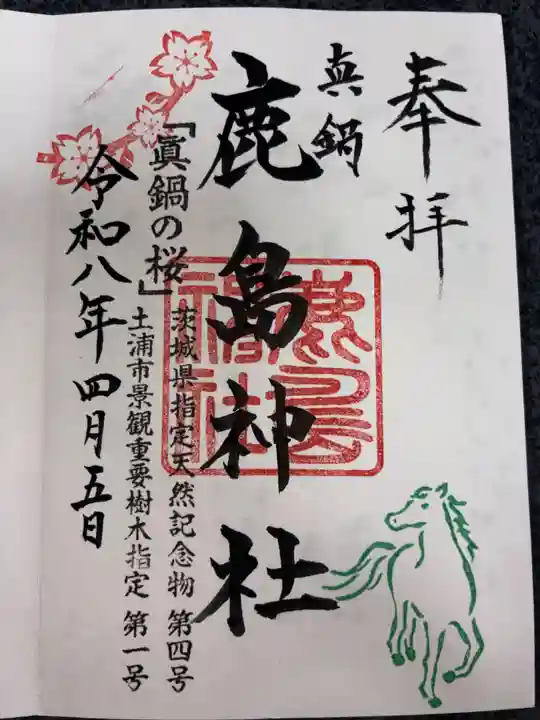 奉拝
真鍋
鹿島神社
鹿島神社
「眞鍋の桜」
茨城県指定天然記念物 第四号
土浦市景観重要樹木指定 第一号
令和八年四月五日